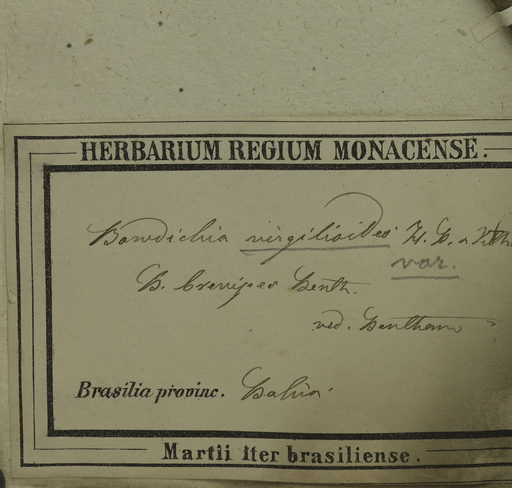 HERBARIUM REGIUM MONACENSE.
Bowdichia virgilioides H. B. &
var.
B. brevipes Benth.
ved. Bentham
Brasilia provinc. Bahia.
Martii Iter brasiliense.